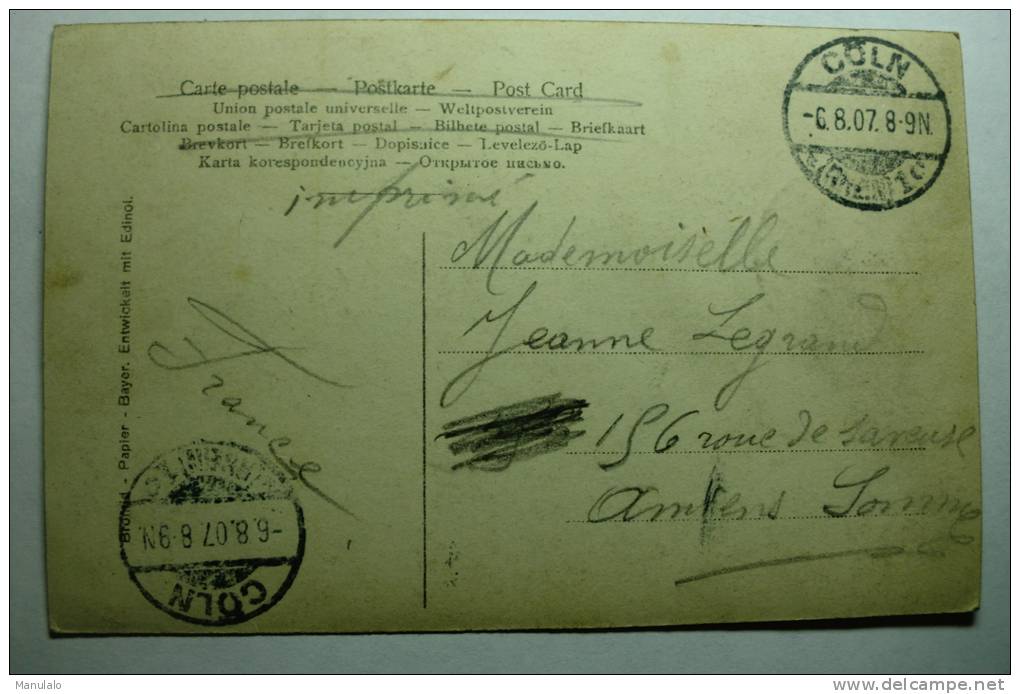 Carte postale — Postkarte — Post Card
Union postale universelle — Weltpostverein
Cartolina postale — Tarjeta postal — Bilhete postal — Briefkaart
Brevkort — Brefkort — Dopisnice — Levelező-Lap
Karta korespondencyjna — Открытое письмо.
imprimé
CÖLN
-6.8.07. 8-9N.
Mademoiselle
Jeanne Legrand
156 roue de Saveuse
Amiens Somme
France
Bromid - Papier - Bayer. Entwickelt mit Edinol.
-6.8.07 8-9N.
CÖLN
Manulalo
delcampe.net